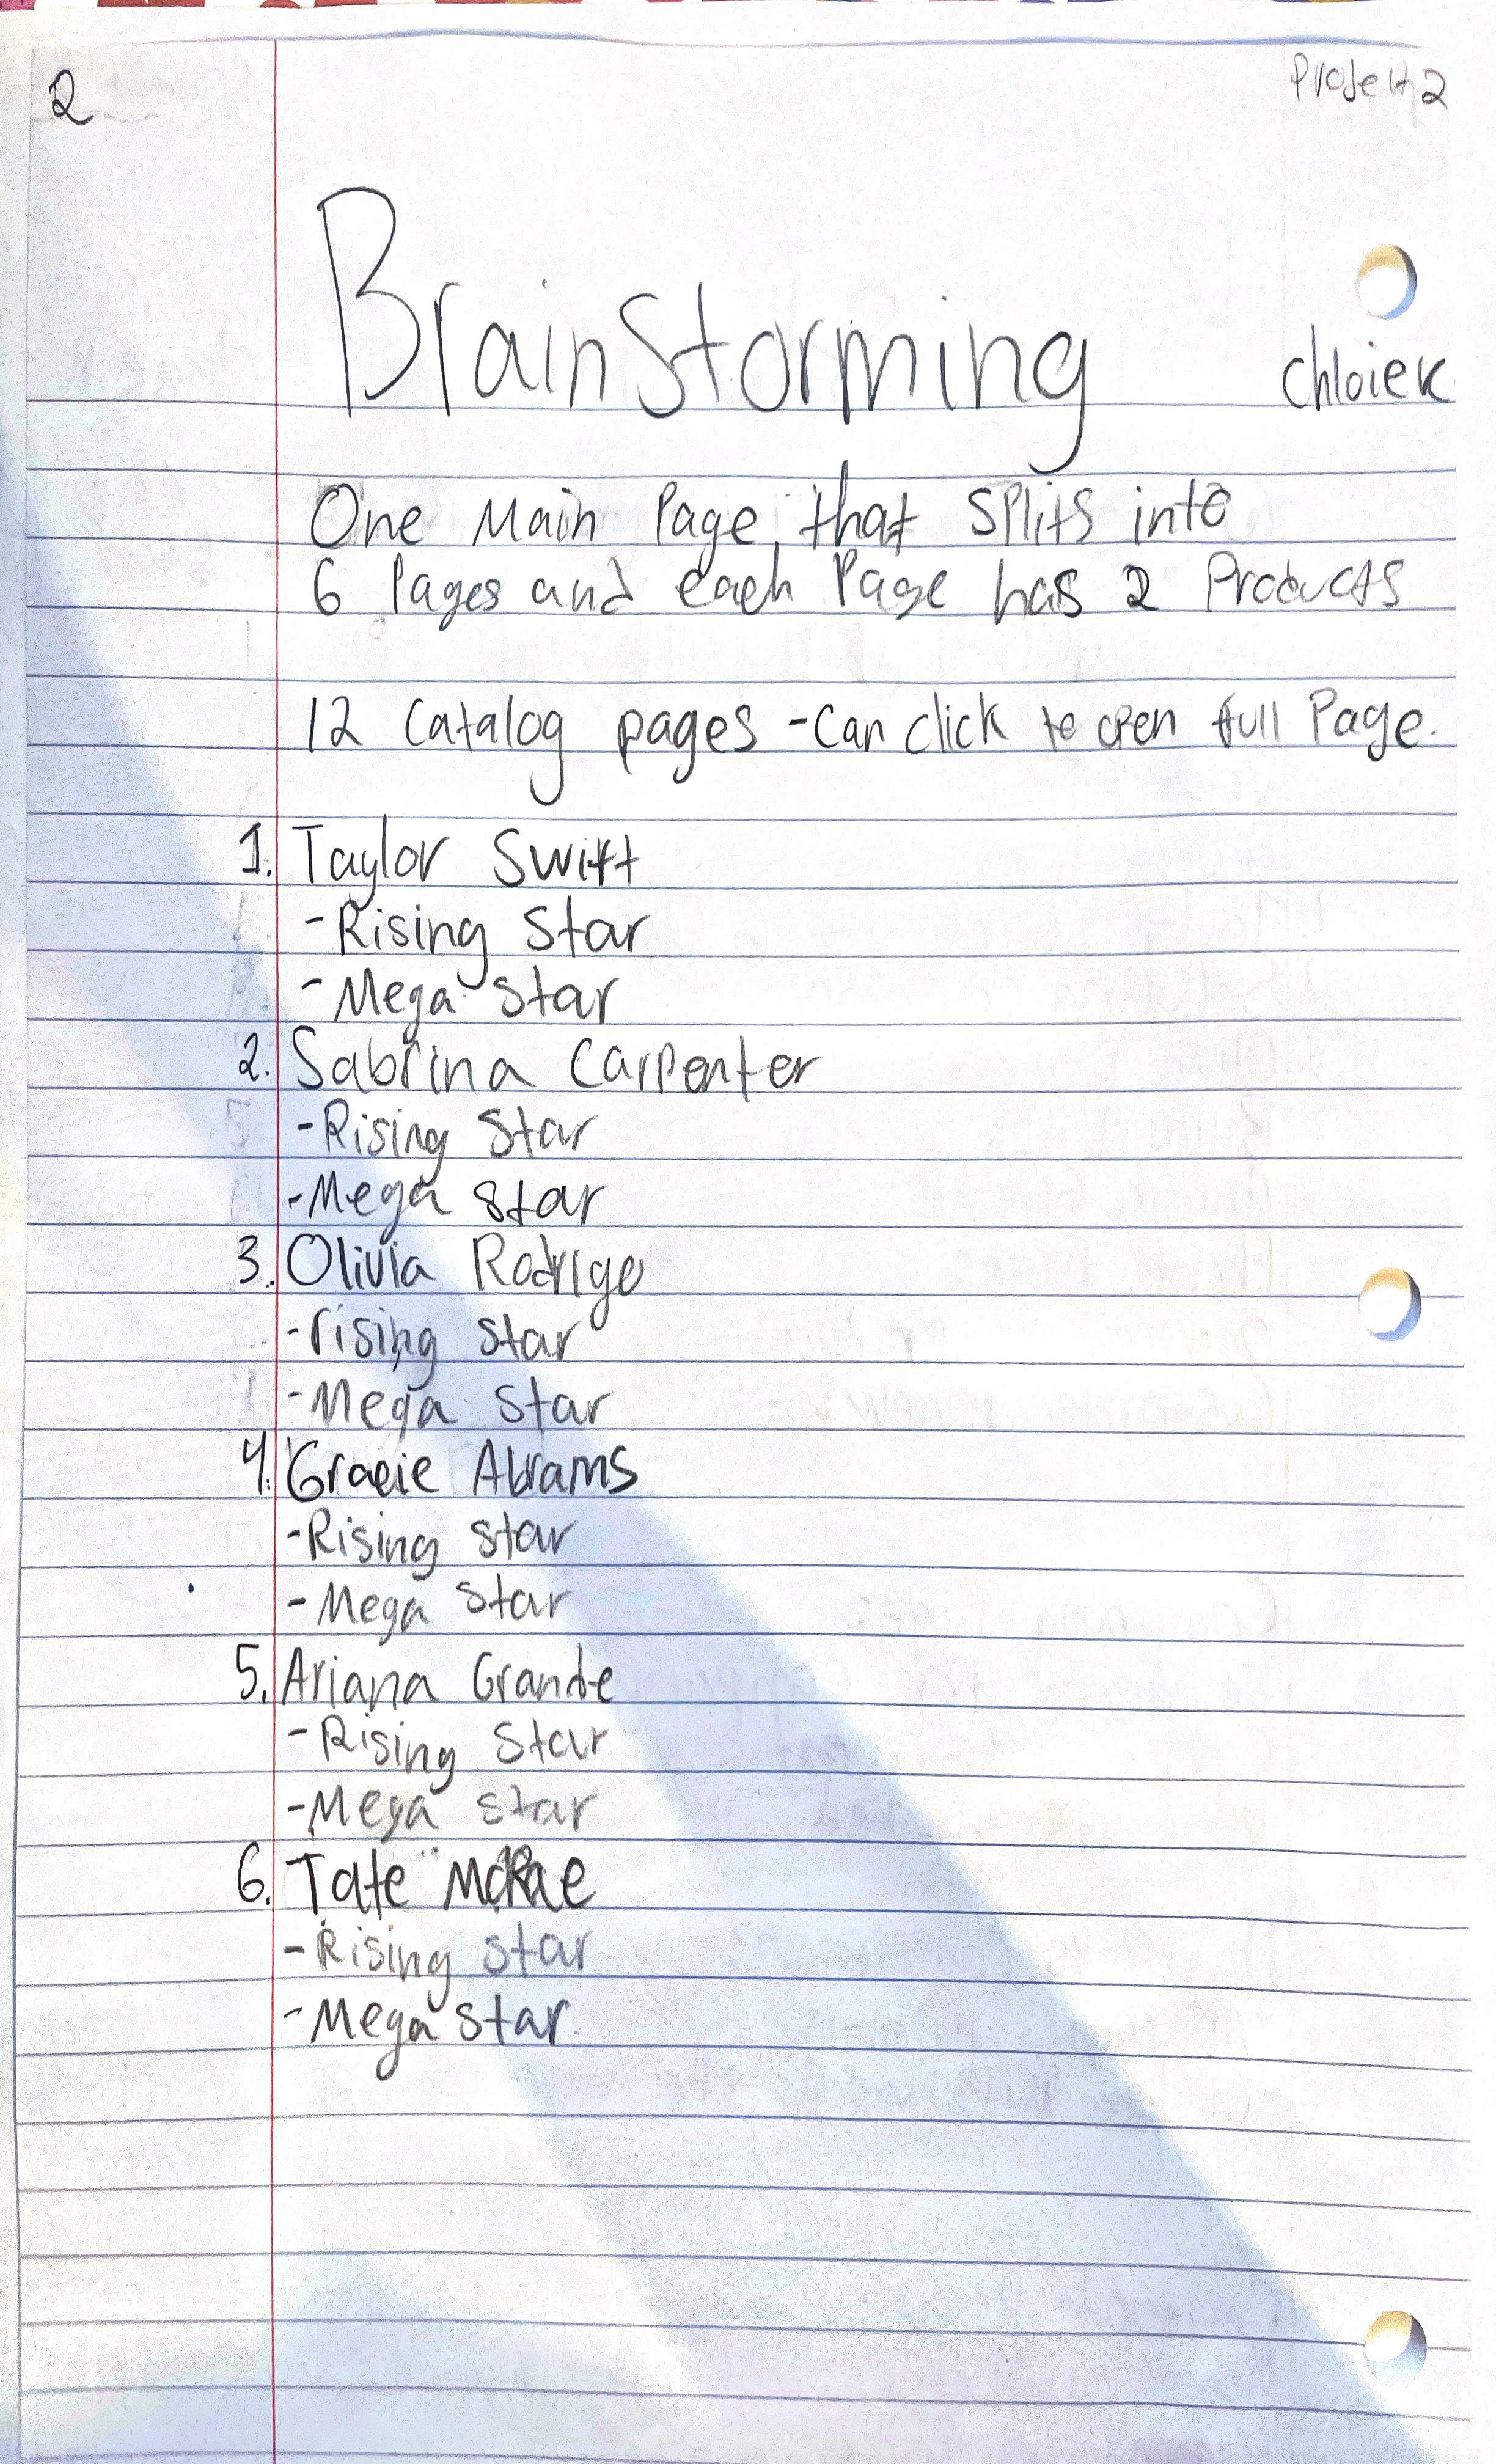 2
Projekt 2
Brainstorming
Chloiek
One Main Page, that Splits into
6 Pages and each Page has 2 Products
12 Catalog pages - Can click to open full Page.
1. Taylor Swift
- Rising Star
- Mega Star
2. Sabrina Carpenter
- Rising Star
- Mega Star
3. Olivia Rodrigo
- rising Star
- Mega Star
4. Gracie Abrams
- Rising Star
- Mega Star
5. Ariana Grande
- Rising Star
- Mega Star
6. Tate McRae
- Rising Star
- Mega Star.